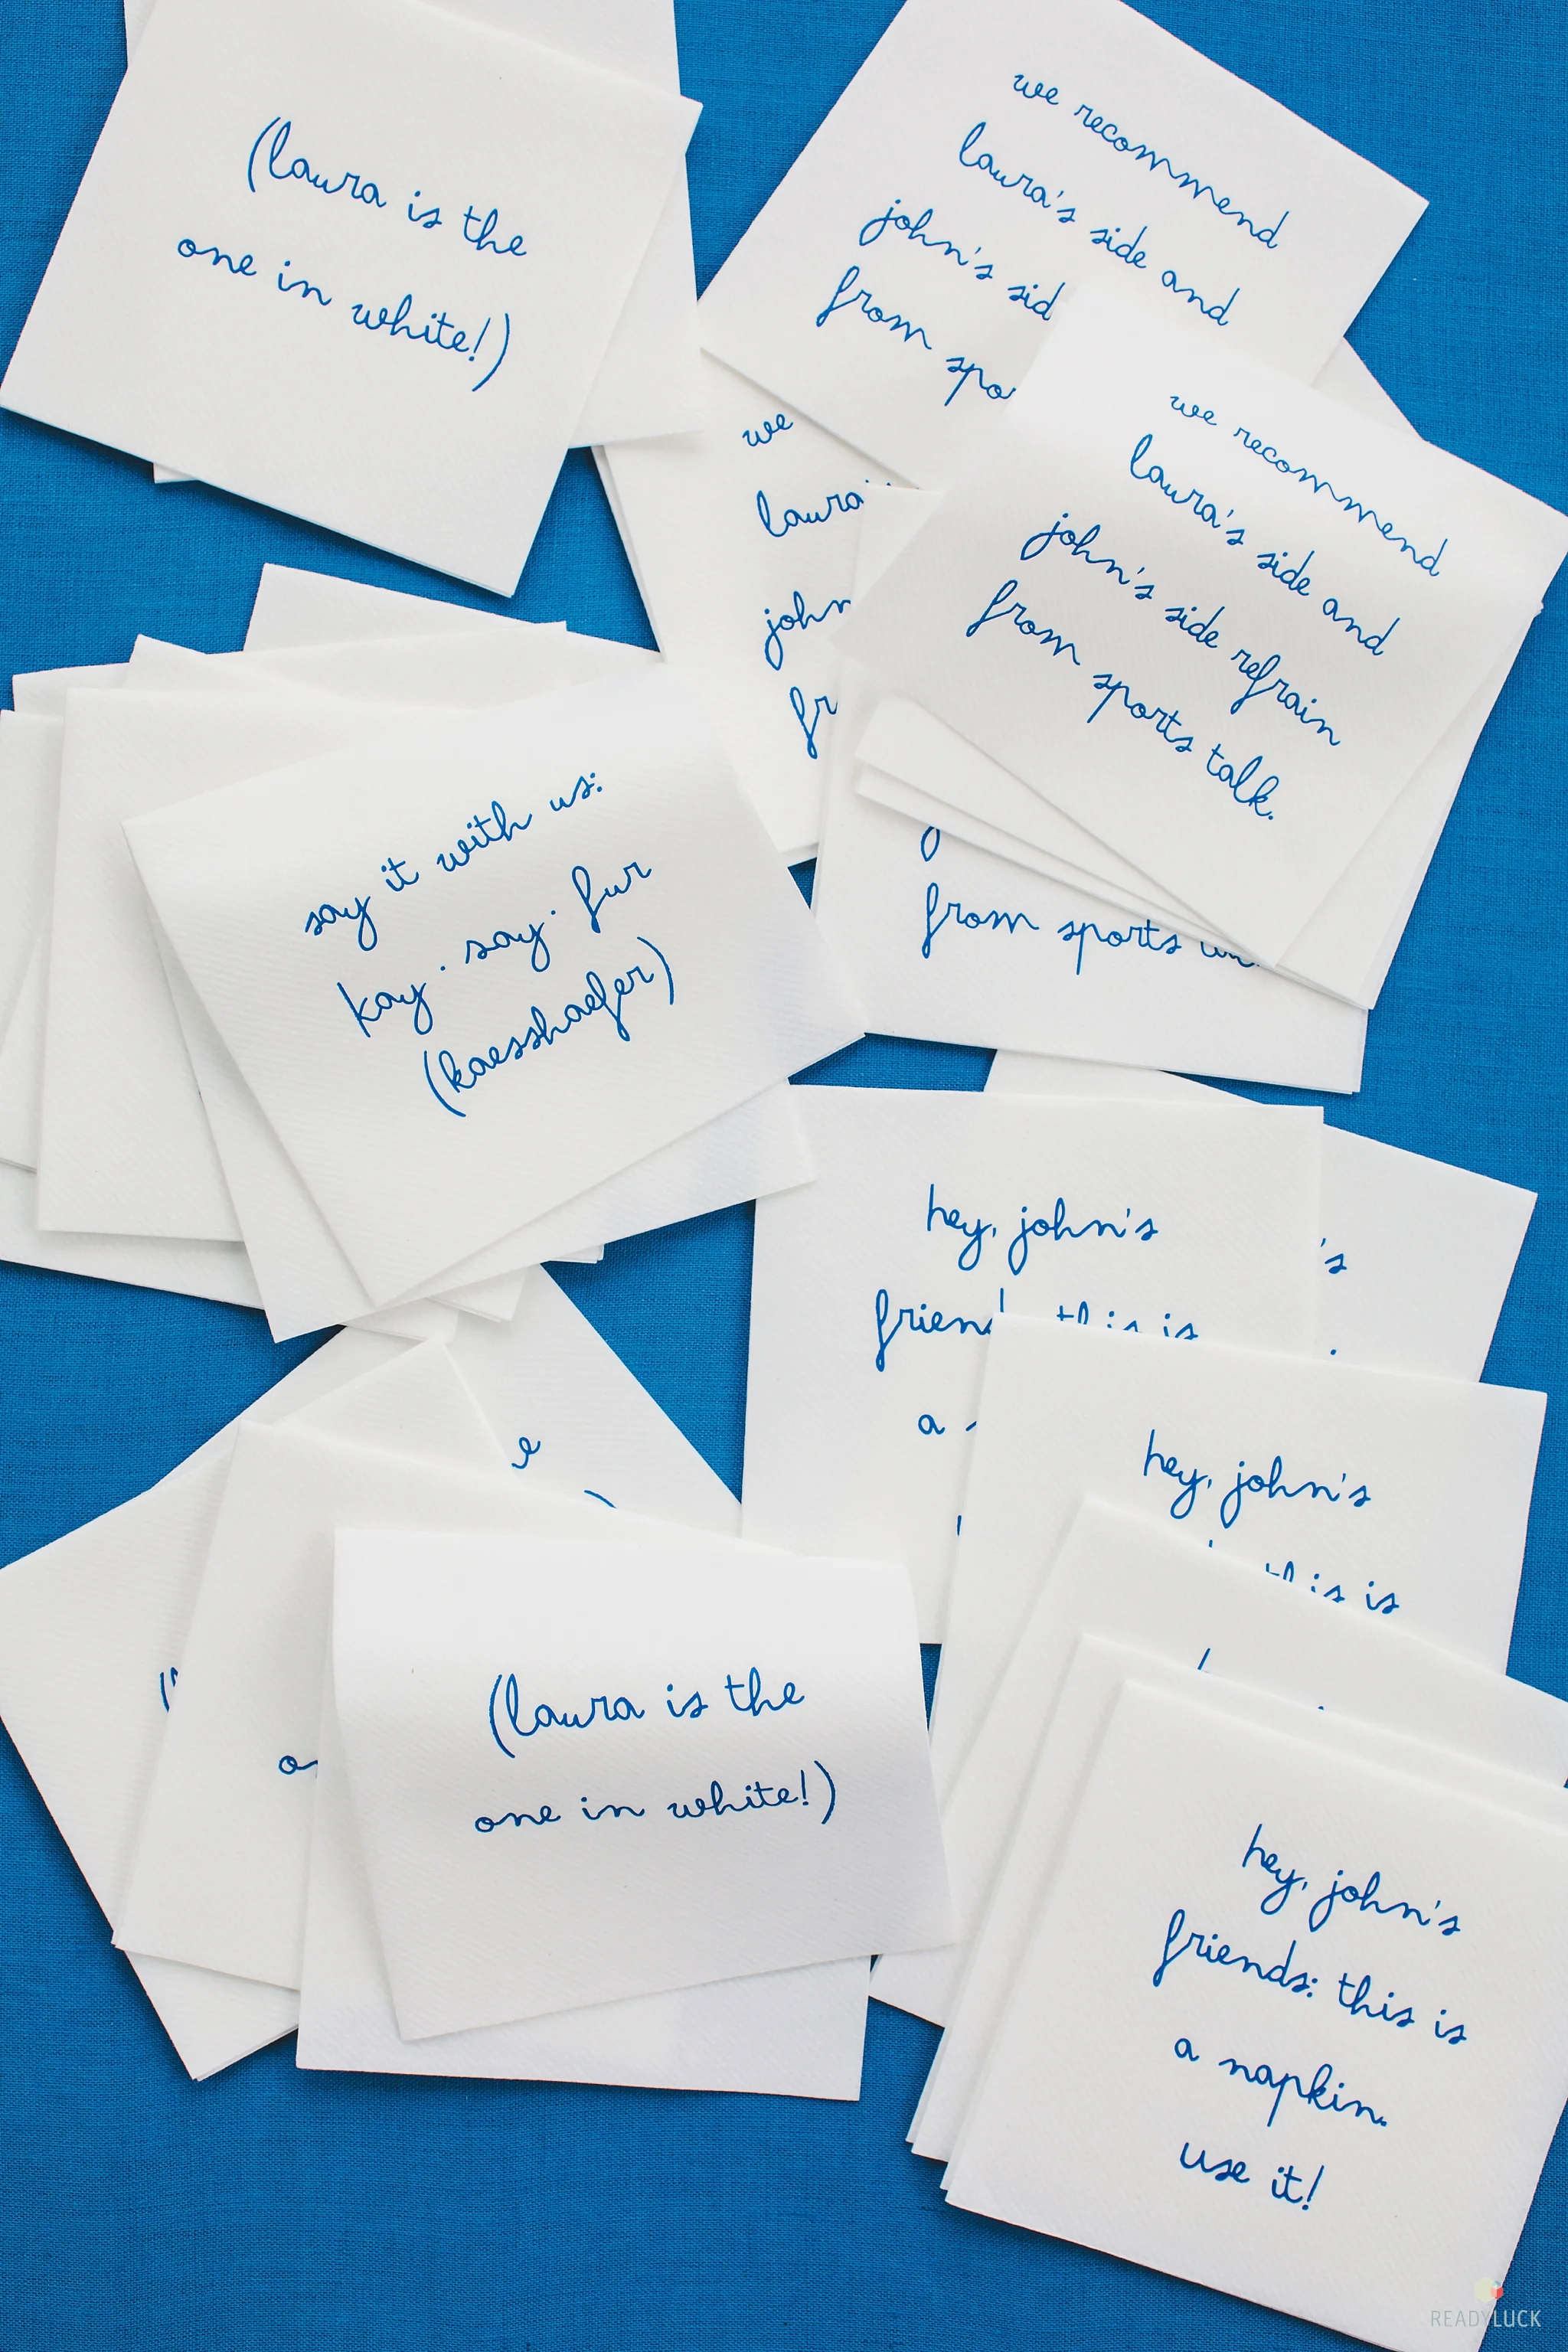 (laura is the
one in white!)
we recommend
laura's side and
john's sid
from spo
we
laura'
john
fr
we recommend
laura's side and
john's side refrain
from sports talk.
from sports
say it with us:
kay · say · fur
(kaesshaefer)
hey, john's
this is
a
's
hey, john's
this is
(laura is the
one in white!)
hey, john's
friends: this is
a napkin.
use it!
READYLUCK